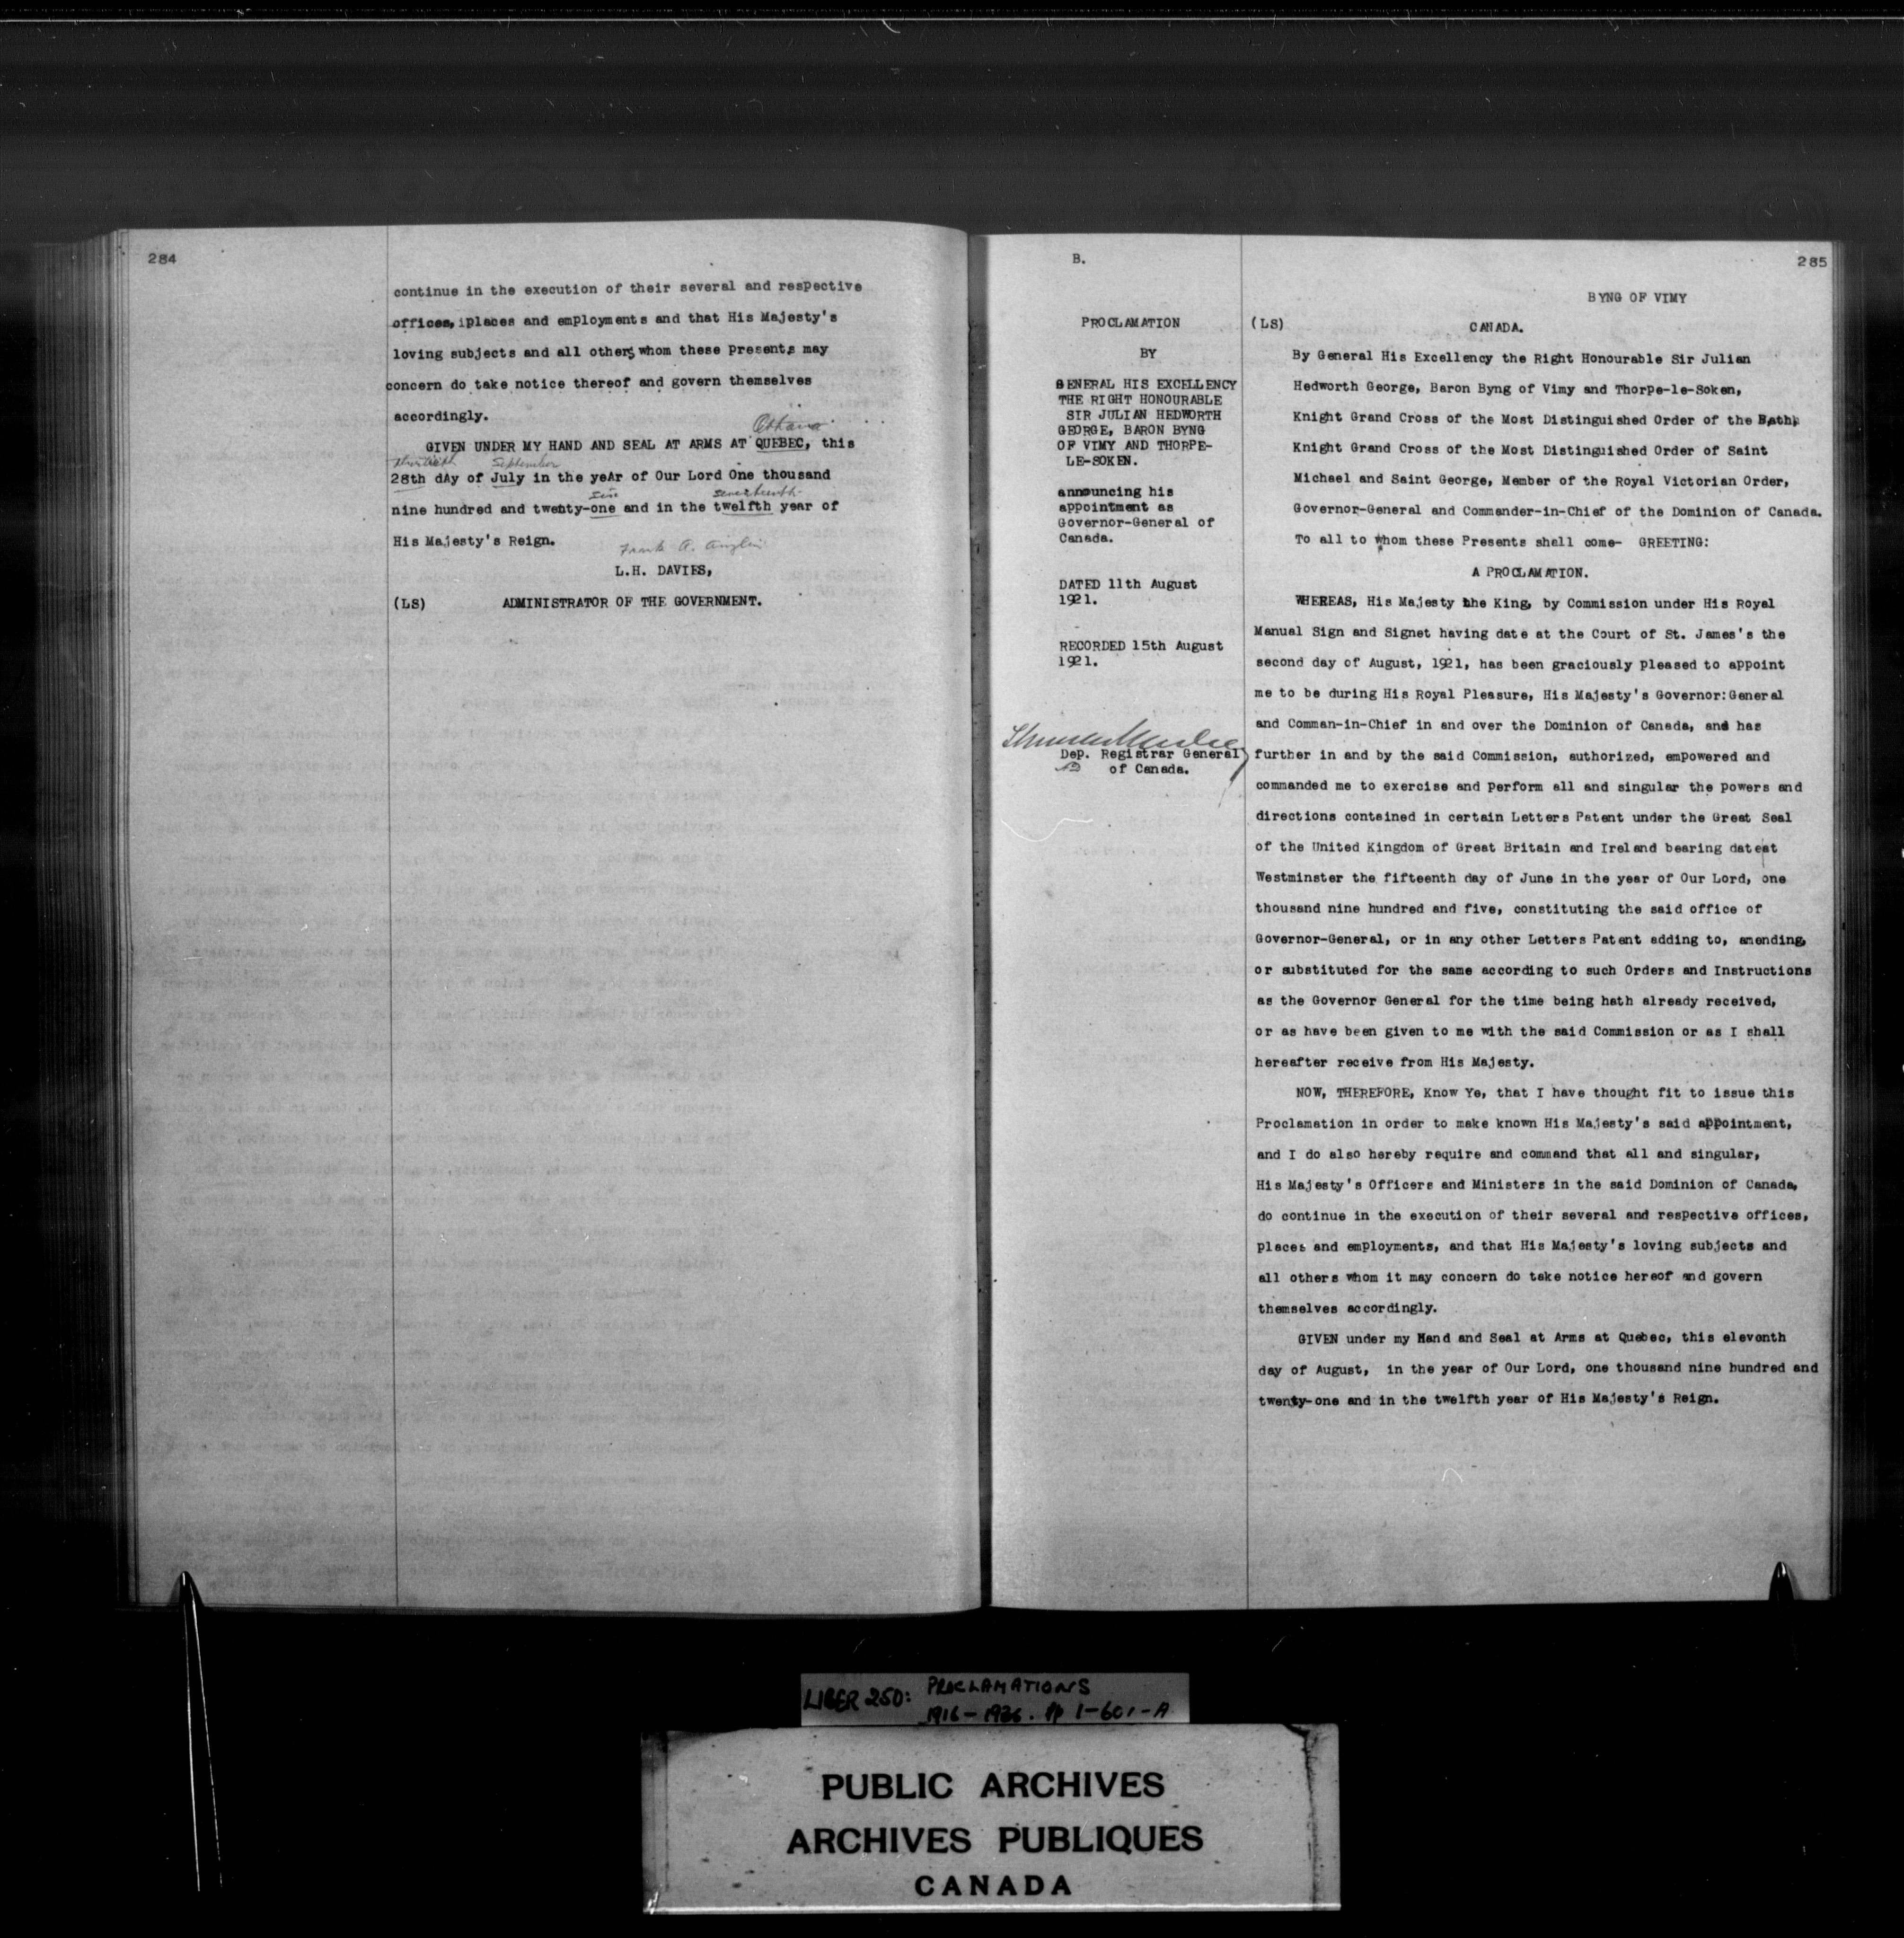 284
continue in the execution of their several and respective
offices, places and employments and that His Majesty's
loving subjects and all others whom these presents may
concern do take notice thereof and govern themselves
accordingly.
Ottawa
GIVEN UNDER MY HAND AND SEAL AT ARMS AT QUEBEC, this
thirtieth September
28th dAy of July in the yeAr of Our Lord One thousand
six seventeenth
nine hundred and twenty-one and in the twelfth year of
His Majesty's Reign.
Frank A. Anglin
L.H. DAVIES,
(LS) ADMINISTRATOR OF THE GOVERNMENT.
B.
285
PROCLAMATION
BY
GENERAL HIS EXCELLENCY
THE RIGHT HONOURABLE
SIR JULIAN HEDWORTH
GEORGE, BARON BYNG
OF VIMY AND THORPE-
LE-SOKEN.
announcing his
appointment as
Governor-General of
Canada.
DATED 11th August
1921.
RECORDED 15th August
1921.
Dep. Registrar General
of Canada.
BYNG OF VIMY
(LS) CANADA.
By General His Excellency the Right Honourable Sir Julian
Hedworth George, Baron Byng of Vimy and Thorpe-le-Soken,
Knight Grand Cross of the Most Distinguished Order of the Bath,
Knight Grand Cross of the Most Distinguished Order of Saint
Michael and Saint George, Member of the Royal Victorian Order,
Governor-General and Commander-in-Chief of the Dominion of Canada.
To all to whom these Presents shall come- GREETING:
A PROCLAMATION.
WHEREAS, His Majesty the King, by Commission under His Royal
Manual Sign and Signet having date at the Court of St. James's the
second day of August, 1921, has been graciously pleased to appoint
me to be during His Royal Pleasure, His Majesty's Governor:General
and Comman-in-Chief in and over the Dominion of Canada, and has
further in and by the said Commission, authorized, empowered and
commanded me to exercise and perform all and singular the powers and
directions contained in certain Letters Patent under the Great Seal
of the United Kingdom of Great Britain and Ireland bearing date at
Westminster the fifteenth day of June in the year of Our Lord, one
thousand nine hundred and five, constituting the said office of
Governor-General, or in any other Letters Patent adding to, amending,
or substituted for the same according to such Orders and Instructions
as the Governor General for the time being hath already received,
or as have been given to me with the said Commission or as I shall
hereafter receive from His Majesty.
NOW, THEREFORE, Know Ye, that I have thought fit to issue this
Proclamation in order to make known His Majesty's said appointment,
and I do also hereby require and command that all and singular,
His Majesty's Officers and Ministers in the said Dominion of Canada,
do continue in the execution of their several and respective offices,
places and employments, and that His Majesty's loving subjects and
all others whom it may concern do take notice hereof and govern
themselves accordingly.
GIVEN under my Hand and Seal at Arms at Quebec, this eleventh
day of August, in the year of Our Lord, one thousand nine hundred and
twenty-one and in the twelfth year of His Majesty's Reign.
LIBER 250: PROCLAMATIONS
1916-1936. pp 1-601-A
PUBLIC ARCHIVES
ARCHIVES PUBLIQUES
CANADA